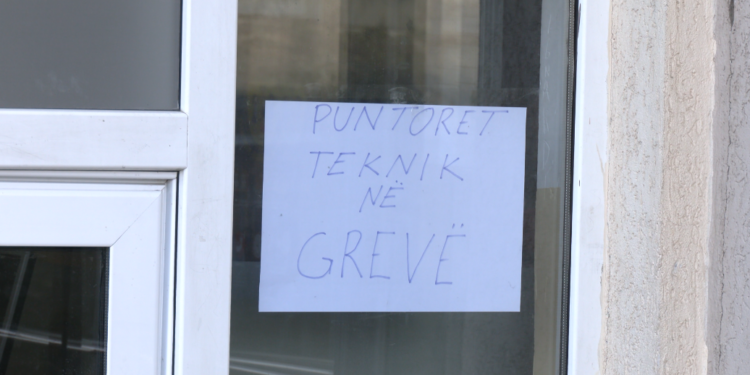 PUNTORET
TEKNIK
NË
GREVË